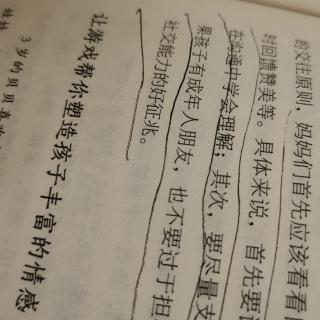 的交往原则，妈妈们首先应该看看
时回馈赞美等。具体来说，首先要
在沟通中学会理解；其次，要尽量支
果孩子有成年人朋友，也不要过于担
社交能力的好征兆。
让游戏帮你塑造孩子丰富的情感
3岁的贝贝喜
娃娃